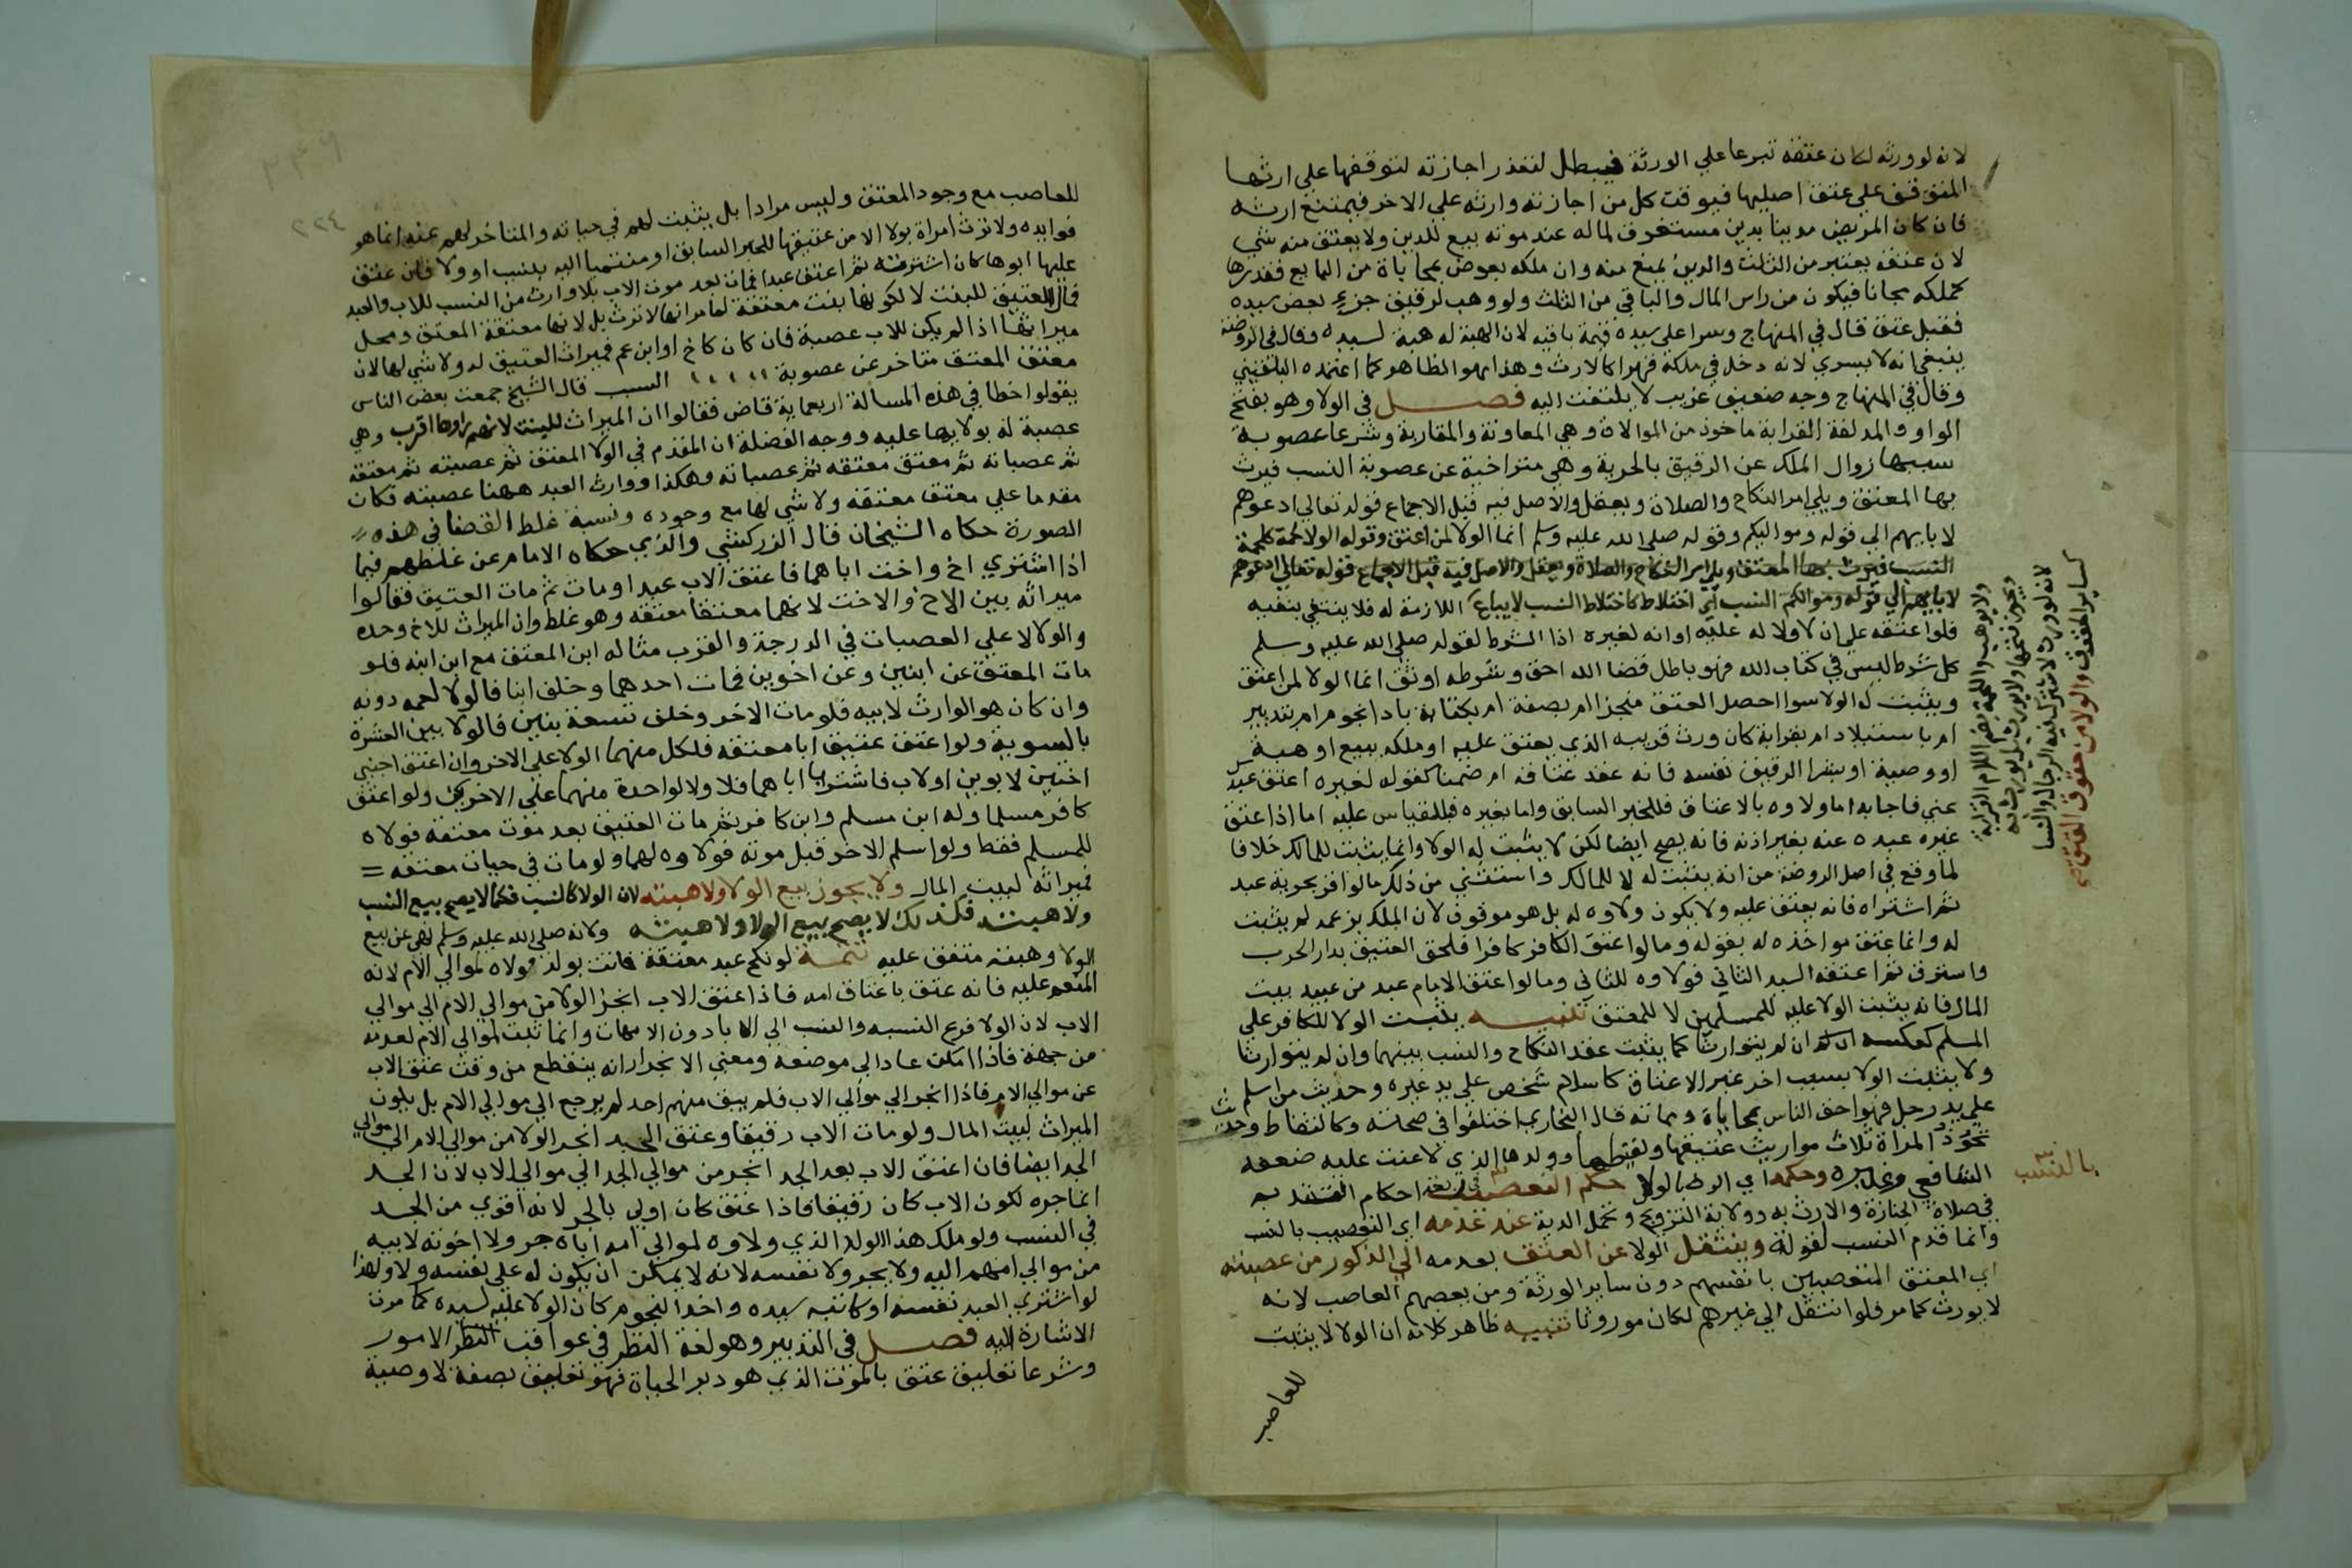 لانه لو ورثه لكان عتقه تبرعا علي الورثة فيبطل لتعذر اجازته لتوقفها علي ارثها
المتوقف علي عتق اصليها فيوقت كل من اجازته وارثه علي الاخر فيمتنع ارثه
فان كان المريض مدينا بدين مستغرق لماله عند موته بيع للدين ولا يعتق منه شي
لان عتقه يعتبر من الثلث والدين يمنع منه وان ملكه بعوض بمحاباة من البايع فقدرها
كملكه مجانا فيكون من راس المال والباقي من الثلث ولو وهب لرقيق جزء بعض سيده
فقبل عتق قال في المنهاج وسرا علي سيده قيمة باقيه لان الهبة له هبة لسيده وقال في الروضة
ينبغي انه لا يسري لانه دخل في ملكه قهرا كالارث وهذا هو الظاهر كما اعتمده البلقيني
وقال في المنهاج وجه ضعيف غريب لا يلتفت اليه فصل في الولا وهو بفتح
الواو والمد لغة القرابة ماخوذ من الموالاة وهي المعاونة والمقاربة وشرعا عصوبة
سببها زوال الملك عن الرقيق بالحرية وهي متراخية عن عصوبة النسب فيرث
بها المعتق ويلي امر النكاح والصلاة ويعقل والاصل فيه قبل الاجماع قوله تعالي ادعوهم
لابايهم الي قوله ومواليكم وقوله صلي الله عليه وسلم انما الولا لمن اعتق وقوله الولا لحمة كلحمة
النسب فيرث بها المعتق ويلي امر النكاح والصلاة ويعقل والاصل فيه قبل الاجماع قوله تعالي ادعوهم
لابايهم الي قوله ومواليكم النسب اي اختلاط كاختلاط النسب لا يباع اللازمة له فلا ينتفي بنفيه
فلو اعتقه علي ان لا ولا له عليه او انه لغيره اذا الشرط لقوله صلي الله عليه وسلم
كل شرط ليس في كتاب الله فهو باطل قضا الله احق وشرطه اوثق انما الولا لمن اعتق
ويثبت له الولا سوا احصل العتق منجزا ام بصفة ام بكتابة بادا نجوم ام بتدبير
ام باستيلاد ام بقرابة كان ورث قريبه الذي يعتق عليه او ملكه ببيع او هبة
او وصية او بشرا الرقيق نفسه فانه عقد عتاقة ام ضمنا كقوله لغيره اعتق عبدك
عني فاجابه اما ولاوه بالاعتاق فللخبر السابق واما بغيره فبالقياس عليه اما اذا اعتق
غيره عبده عنه بغير اذنه فانه يصح ايضا لكن لا يثبت له الولا وانما يثبت للمالك خلافا
لما وقع في اصل الروضة من انه يثبت له لا للمالك واستثني من ذلك ما لو اقر بحرية عبد
ثم اشتراه فانه يعتق عليه ولا يكون ولاوه له بل هو موقوف لان الملك بزعمه لم يثبت
له وانما عتق مواخذه له بقوله وما لو اعتق الكافر كافرا فلحق العتيق بدار الحرب
واسترق ثم اعتقه السيد الثاني فولاوه للثاني وما لو اعتق الامام عبد من عبيد بيت
المال فانه يثبت الولا عليه للمسلمين لا للمعتق تنبيه يثبت الولا للكافر علي
المسلم كعكسه وان لم يتوارثا كما يثبت عقد النكاح والنسب بينهما وان لم يتوارثا
ولا يثبت الولا بسبب اخر غير الاعتاق كاسلام شخص علي يد غيره وحديث من اسلم
علي يد رجل فهو احق الناس بمحياه ومماته قال البخاري اختلفوا في صحته وكالتقاط وحديث
تحوز المراة ثلاث مواريث عتيقها ولقيطها وولدها الذي لاعنت عليه ضعفه
الشافعي وغيره وحكمه اي الارث بالولا حكم التعصيب في اربعة احكام التقدم به
في صلاة الجنازة والارث به وولاية التزويج وتحمل الدية عند عدمه اي التعصيب بالنسب
وانما قدم النسب لقوته وينتقل الولا عن المعتق بعد مه الي الذكور من عصبته
اي المعتق المتعصبين بانفسهم دون ساير الورثة ومن يعصبهم العاصب لانه
لا يورث كما مر فلو انتقل الي غيرهم لكان موروثا تنبيه ظاهر كلامه ان الولا لا يثبت
للعاصب
ولا يوهب واللحمة بضم اللام القرابة
ويجوز فتحها ولا يورث بل يورث به
لانه لو ورث لاشترك فيه الرجال والنسا
كساير الحقوق والولا من حقوق العتق
بالنسب
٢٢٤
للعاصب مع وجود المعتق وليس مرادا بل يثبت لهم في حياته والمتاخر لهم عنه انما هو
فوايده ولا ترث امراة بولا الا من عتيقها للخبر السابق او منتميا اليه بنسب او ولا فان عتق
عليها ابوها كان اشترته ثم اعتق عبدا فمات بعد موت الاب بلا وارث من النسب للاب والعبد
فمال العتيق للبنت لا لكونها بنت معتقه لما مر انها لا ترث بل لانها معتقة المعتق ومحل
ميراثها اذا لم يكن للاب عصبة فان كان كاخ او ابن عم فميراث العتيق له ولا شي لها لان
معتق المعتق متاخر عن عصوبة النسب قال الشيخ سمعت بعض الناس
يقول اخطا في هذه المسالة اربعماية قاض فقالوا ان الميراث للبنت لانهم راوها اقرب وهي
عصبة له بولايها عليه ووجه الغفلة ان المقدم في الولا المعتق ثم عصبته ثم معتقه
ثم عصباته ثم معتق معتقه ثم عصباته وهكذا ووارث العبد ههنا عصبته فكان
مقدما علي معتق معتقه ولا شي لها مع وجوده ونسبة غلط القضا في هذه
الصورة حكاه الشيخان قال الزركشي والذي حكاه الامام عن غلطهم فيما
اذا اشتري اخ واخت اباهما فاعتق الاب عبدا ومات ثم مات العتيق فقالوا
ميراثه بين الاخ والاخت لانهما معتقا معتقه وهو غلط وان الميراث للاخ وحده
والولا لاعلي العصبات في الدرجة والقرب مثاله ابن المعتق مع ابن ابنه فلو
مات المعتق عن ابنين وعن اخوين فمات احدهما وخلف ابنا فالولا لعمه دونه
وان كان هو الوارث لابيه فلو مات الاخر وخلف تسعة بنين فالولا بين العشرة
بالسوية ولو اعتق عتيق ابا معتقه فلكل منهما الولا علي الاخر وان اعتق اجنبي
اختين لابوين او لاب فاشتريا اباهما فلا ولا لواحدة منهما علي الاخري ولو اعتق
كافر مسلما وله ابن مسلم وابن كافر ثم مات العتيق بعد موت معتقه فولاه
للمسلم فقط ولو اسلم الاخر قبل موته فولاوه لهما ولو مات في حياة معتقه
فميراثه لبيت المال ولا يجوز بيع الولا ولا هبته لان الولا كالنسب فكما لا يصح بيع النسب
ولا هبته فكذلك لا يصح بيع الولا ولا هبته ولانه صلي الله عليه وسلم نهي عن بيع
الولا وهبته متفق عليه تتمة لو نكح عبد معتقة فاتت بولد فولاه لموالي الام لانه
المنعم عليه فانه عتق باعتاق امه فاذا اعتق الاب انجر الولا من موالي الام الي موالي
الاب لان الولا فرع النسب والنسب الي الابا دون الامهات وانما ثبت لموالي الام لعدمه
من جهة فاذا امكن عاد الي موضعه ومعني الانجرار انه ينقطع من وقت عتق الاب
عن موالي الام فاذا انجر الي موالي الاب فلم يبق منهم احد لم يرجع الي موالي الام بل يكون
الميراث لبيت المال ولو مات الاب رقيقا وعتق الجد انجر الولا من موالي الام الي موالي
الجد ايضا فان اعتق الاب بعد الجد انجر من موالي الجد الي موالي الاب لان الجد
انما جره لكون الاب كان رقيقا فاذا عتق كان اولي بالجر لانه اقوي من الجد
في النسب ولو ملك هذا الولد الذي ولاوه لموالي امه اباه جر ولا اخوته لابيه
من موالي امهم اليه ولا يجر ولا نفسه لانه لا يمكن ان يكون له علي نفسه ولا ولهذا
لو اشتري العبد نفسه او كاتبه سيده واخذ النجوم كان الولا عليه لسيده كما مرت
الاشارة اليه فصل في التدبير وهو لغة النظر في عواقب الامور
وشرعا تعليق عتق بالموت الذي هو دبر الحياة فهو تعليق بصفة لا وصية